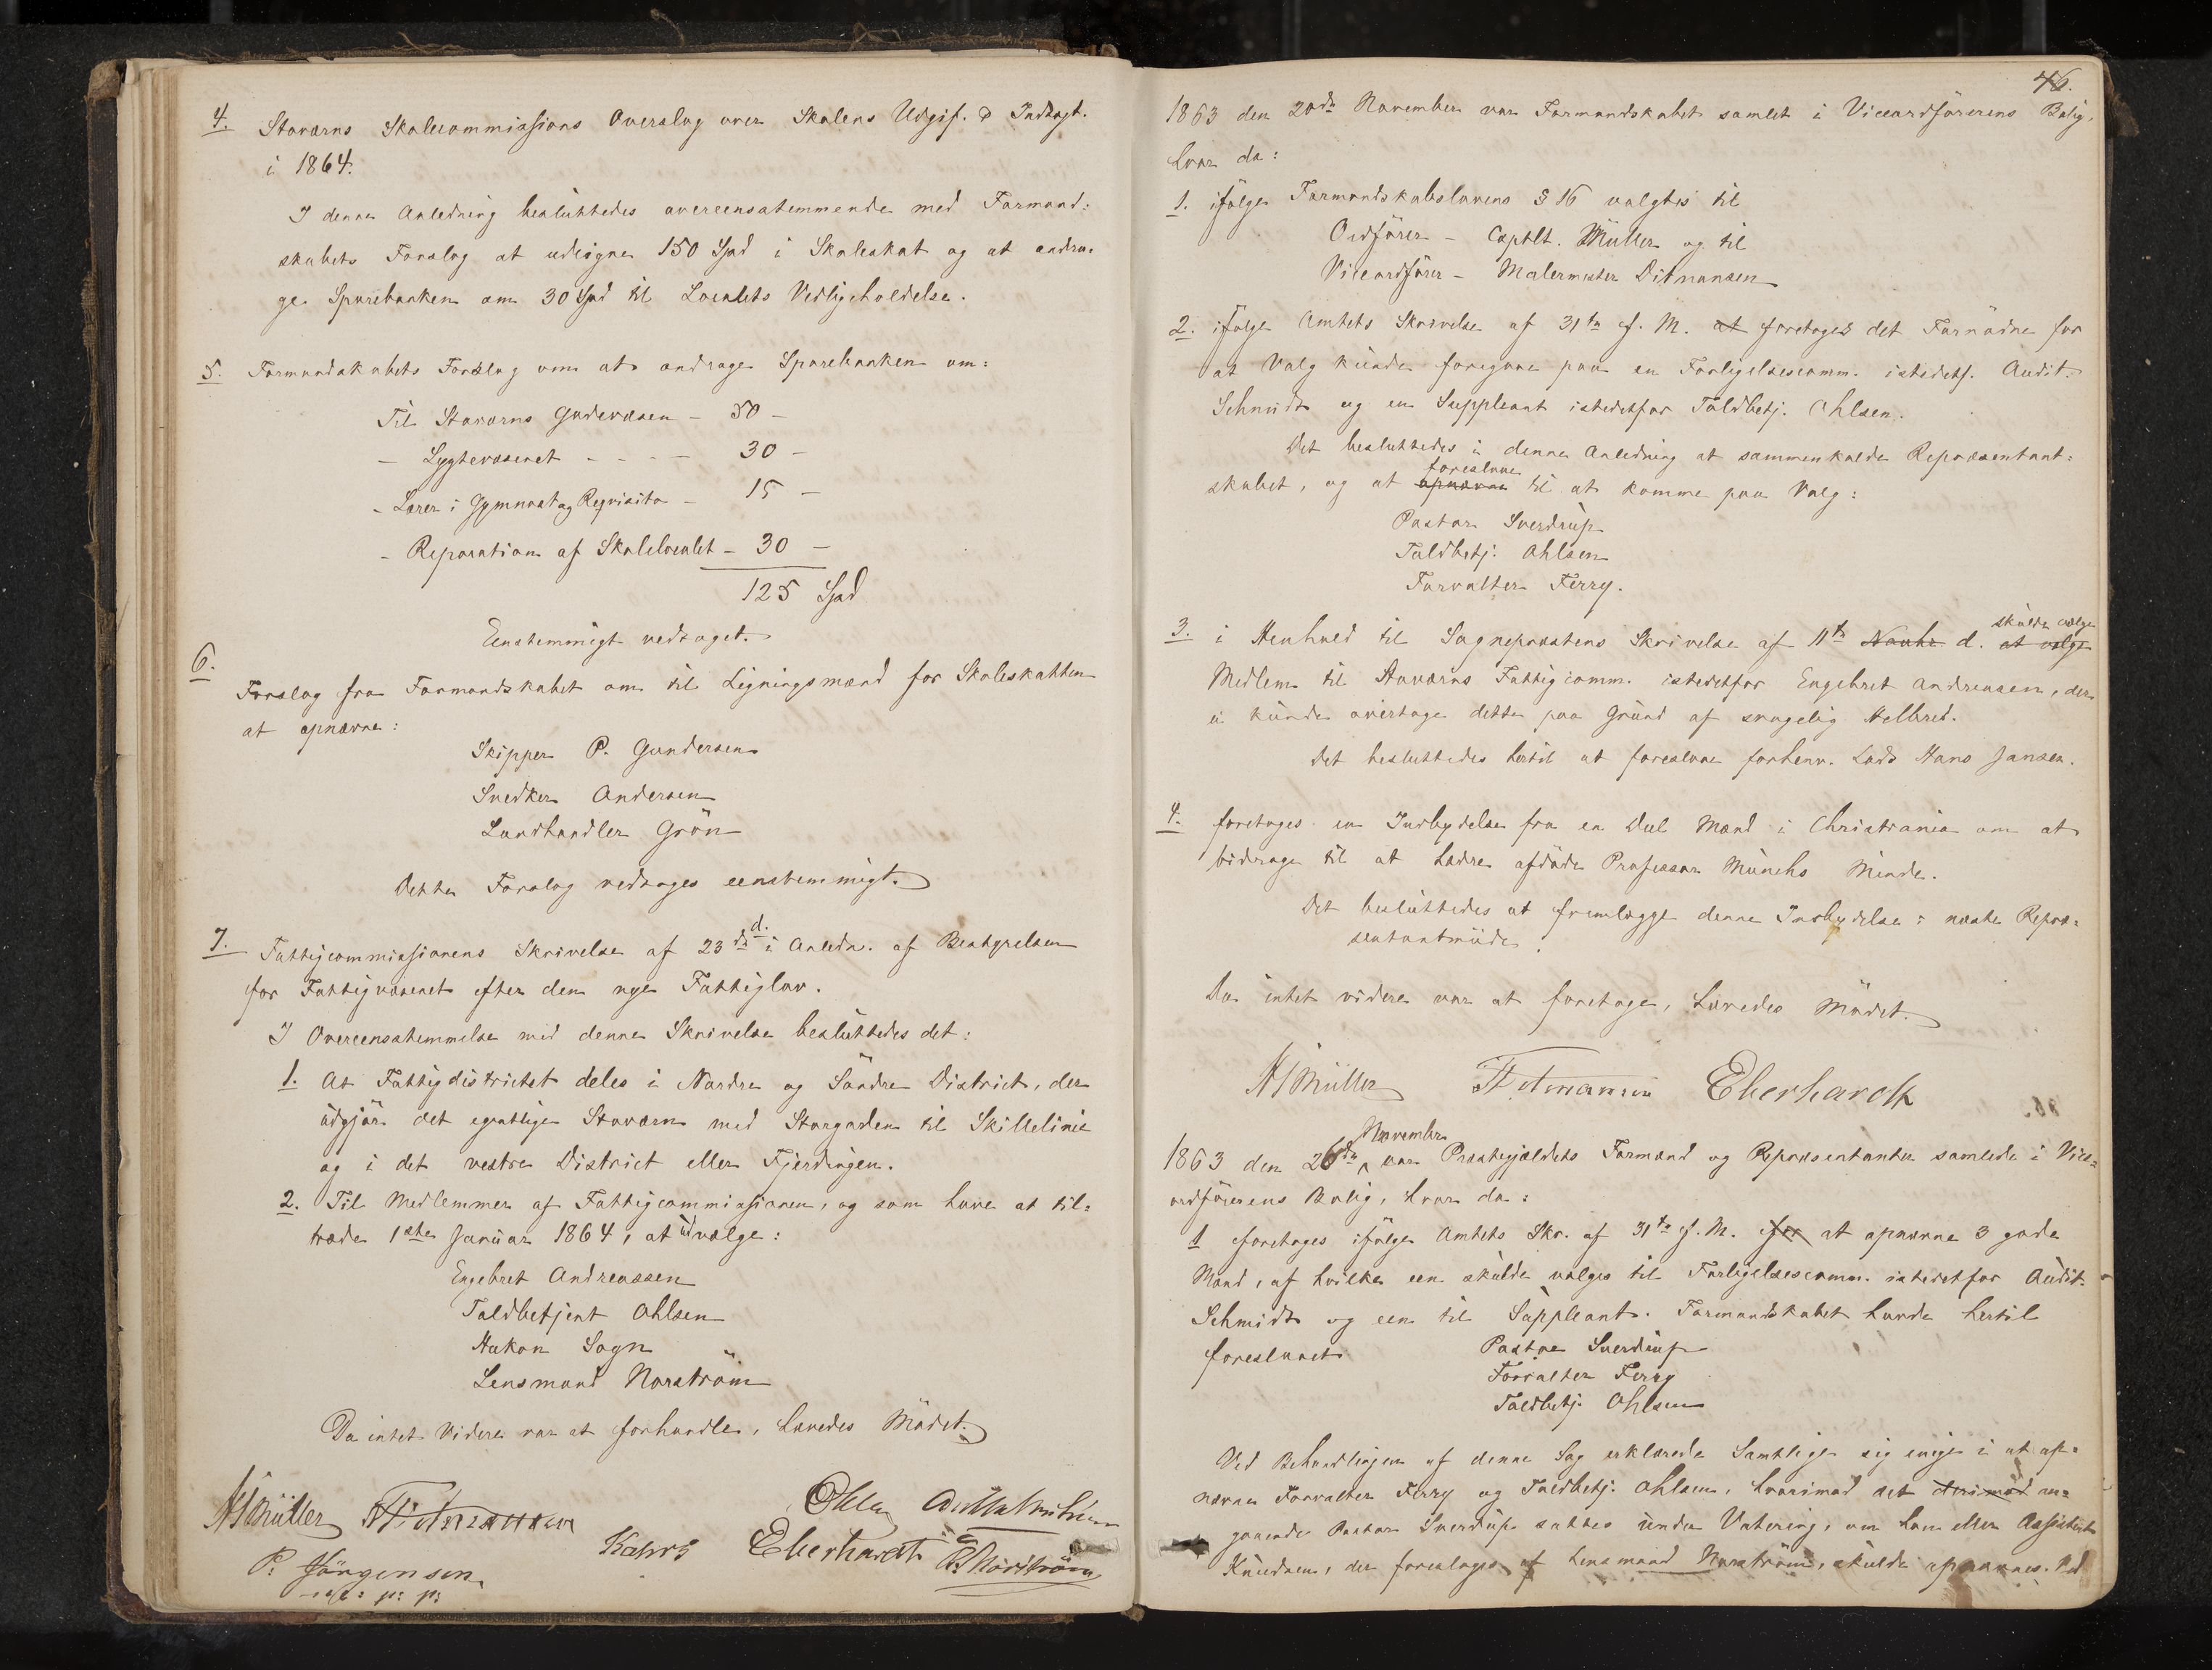 4. Staværns Skolecommissions Overslag over Skolens Udgif. & Indtægt.
i 1864.
I denne Anledning besluttedes overeensstemmende med Formand=
skabets Forslag at udligne 150 Spd i Skoleskat og at andra-
ge Sparebanken om 30 Spd til Localets Vedligeholdelse.
5. Formandskabets Forslag om at andrage Sparebanken om:
Til Staværns Gadevæsen – 50 –
– Lygtevæsenet – – – – 30 –
– Lærer i Gymnast og Reqvisita – 15 –
– Reparation af Skolelocalet – 30 –
125 Spd
Eenstemmigt vedtaget.
6.
Forslag fra Formandskabet om til Ligningsmænd for Skoleskatten
at opnævne:
Skipper P. Gundersen
Snedker Andersen
Landhandler Grön
Dette Forslag vedtoges eenstemmigt.
7. Fattigcommissionens Skrivelse af 23de d. i Anledn. af Bestyrelsen
for Fattigvæsenet efter den nye Fattiglov.
I Overeensstemmelse med denne Skrivelse besluttedes det:
1. At Fattigdistrictet deles i Nordre og Söndre District, der
udgjör det egentlige Staværn med Storgaden til Skillelinie
og i det vestre District eller Fjerdingen.
2. Til Medlemmer af Fattigcommissionen, og som have at til=
træde 1ste Januar 1864, at udvælge:
Engebret Andreassen
Toldbetjent Ohlsen
Hakon Sogn
Lensmand Norström
Da intet videre var at forhandle, hævedes Mödet.
HJMüller Ditmansen Ohlsen
Kahrs Eberhardt Norström
P. Jörgensen
m: p: p:
46.
1863 den 20de November var Formandskabet samlet i Viceordförerens Bolig,
hvor da:
1. ifölge Formandskabslovens § 16 valgtes til
Ordförer – Captlt. Müller og til
Viceordförer – Malermester Ditmansen
2. ifölge Amtets Skrivelse af 31te f. M. at foretoges det Fornödne for
at Valg kunde foregaae paa en Forligelsescomm. istedetf. Audit.
Schmidt og en Suppleant istedetfor Toldbetj. Ohlsen.
Det besluttedes i denne Anledning at sammenkalde Repræsentant=
foreslaae
skabet, og at opnævne til at komme paa Valg:
Pastor Sverdrup
Toldbetj. Ohlsen
Forvalter Ferry.
skulde vælge
3. i Henhold til Sognepræstens Skrivelse af 11te Novbr. d. at vælge
Medlem til Staværns Fattigcomm. istedetfor Engebret Andreasen, der
ei kunde overtage dette paa Grund af svagelig Helbred.
Det besluttedes hertil at foreslaae forhenv. Lods Hans Jansen.
4. foretoges en Indbydelse fra en Deel Mænd i Christiania om at
bidrage til at hædre afdöde Professor Munchs Minde.
Det besluttedes at fremlægge denne Indbydelse i næste Repræ=
sentantmöde.
Da intet videre var at foretage, hævedes Mödet.
HJMüller Ditmansen Eberhardt
November
1863 den 26de var Præstegjeldets Formænd og Repræsentanter samlede i Vice=
ordförerens Bolig, hvor da:
1 foretoges ifölge Amtets Skr. af 31te f. M. for at opnævne 3 gode
Mænd, af hvilke een skulde vælges til Forligelsescomm. istedetfor Audit.
Schmidt og een til Suppleant. Formandskabet havde hertil
foreslaaet Pastor Sverdrup
Forvalter Ferry
Toldbetj. Ohlsen
Ved Behandlingen af denne Sag erklærede Samtlige sig enige i at op=
nævne Forvalter Ferry og Toldbetj. Ohlsen, hvorimod det derimod an=
gaaende Pastor Sverdrup sattes under Votering, om han eller Assistent
Knudsen, der foresloges af Lensmand Norström, skulde opnævnes. Ved